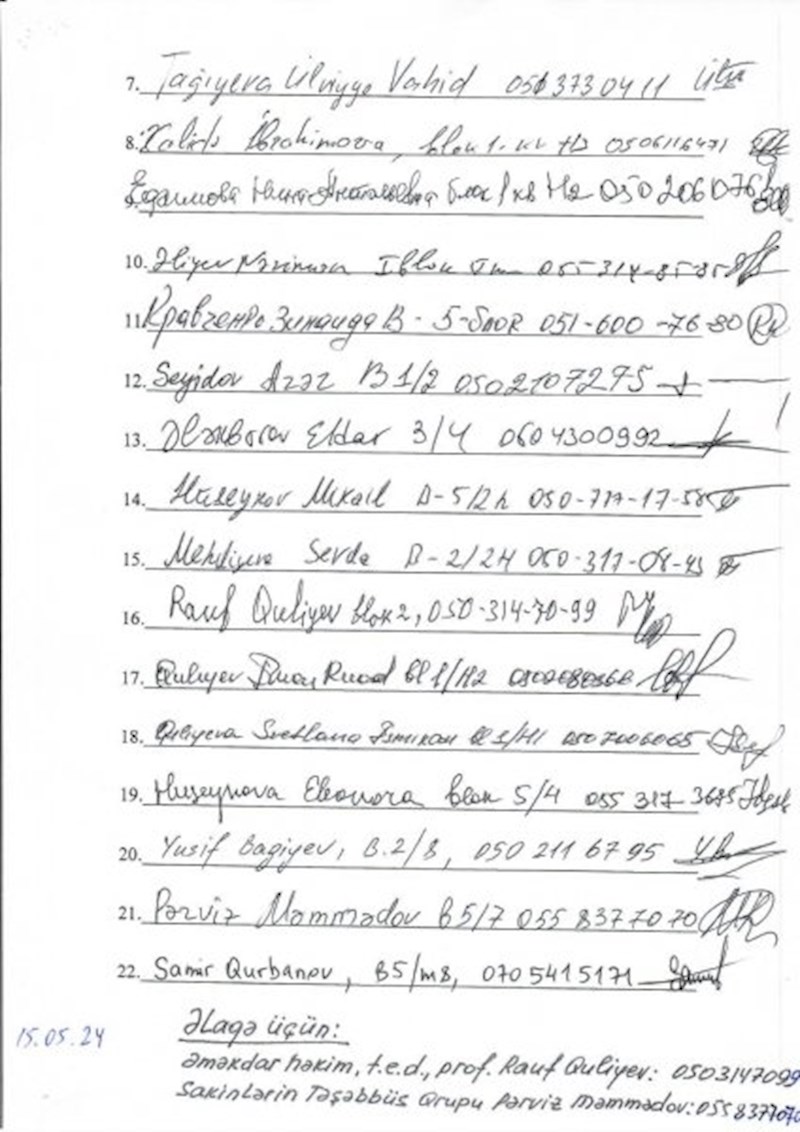 7. Tağıyeva Ülviyyə Vahid 050 373 04 11
8. Xalidə İbrahimova, blok 1. 0506116471
Нина Анатольевна блок 1 кв Н2 050 206 10 76
10. Əliyev Nəriman I blok 055-314-85-85
11. Кравченко Зинаида В - 5-блок 051-600-76-80
12. Seyidov B 1/2 0502107275
13. Ələkbərov Eldar 3/4 0604300992
14. Hüseynov Mikail B-5/2 050-717-17-58
15. Mehdiyeva Sevda B-2/24 050-317-08-43
16. Rauf Quliyev blok 2, 050-314-70-99
17. Quliyev bl 1/H2
18. Quliyeva Svetlana bl 1/H1 0507006065
19. Huseynova Eleonora blok 5/4 055 317 3685
20. Yusif Bagiyev, B.2/8, 050 211 67 95
21. Pərviz Məmmədov B5/7 055 837 70 70
22. Samir Qurbanov, B5/m8, 070 541 51 71
15.05.24
Əlaqə üçün:
Əməkdar həkim, t.e.d., prof. Rauf Quliyev: 0503147099
Sakinlərin Təşəbbüs Qrupu Pərviz Məmmədov: 055 8377070